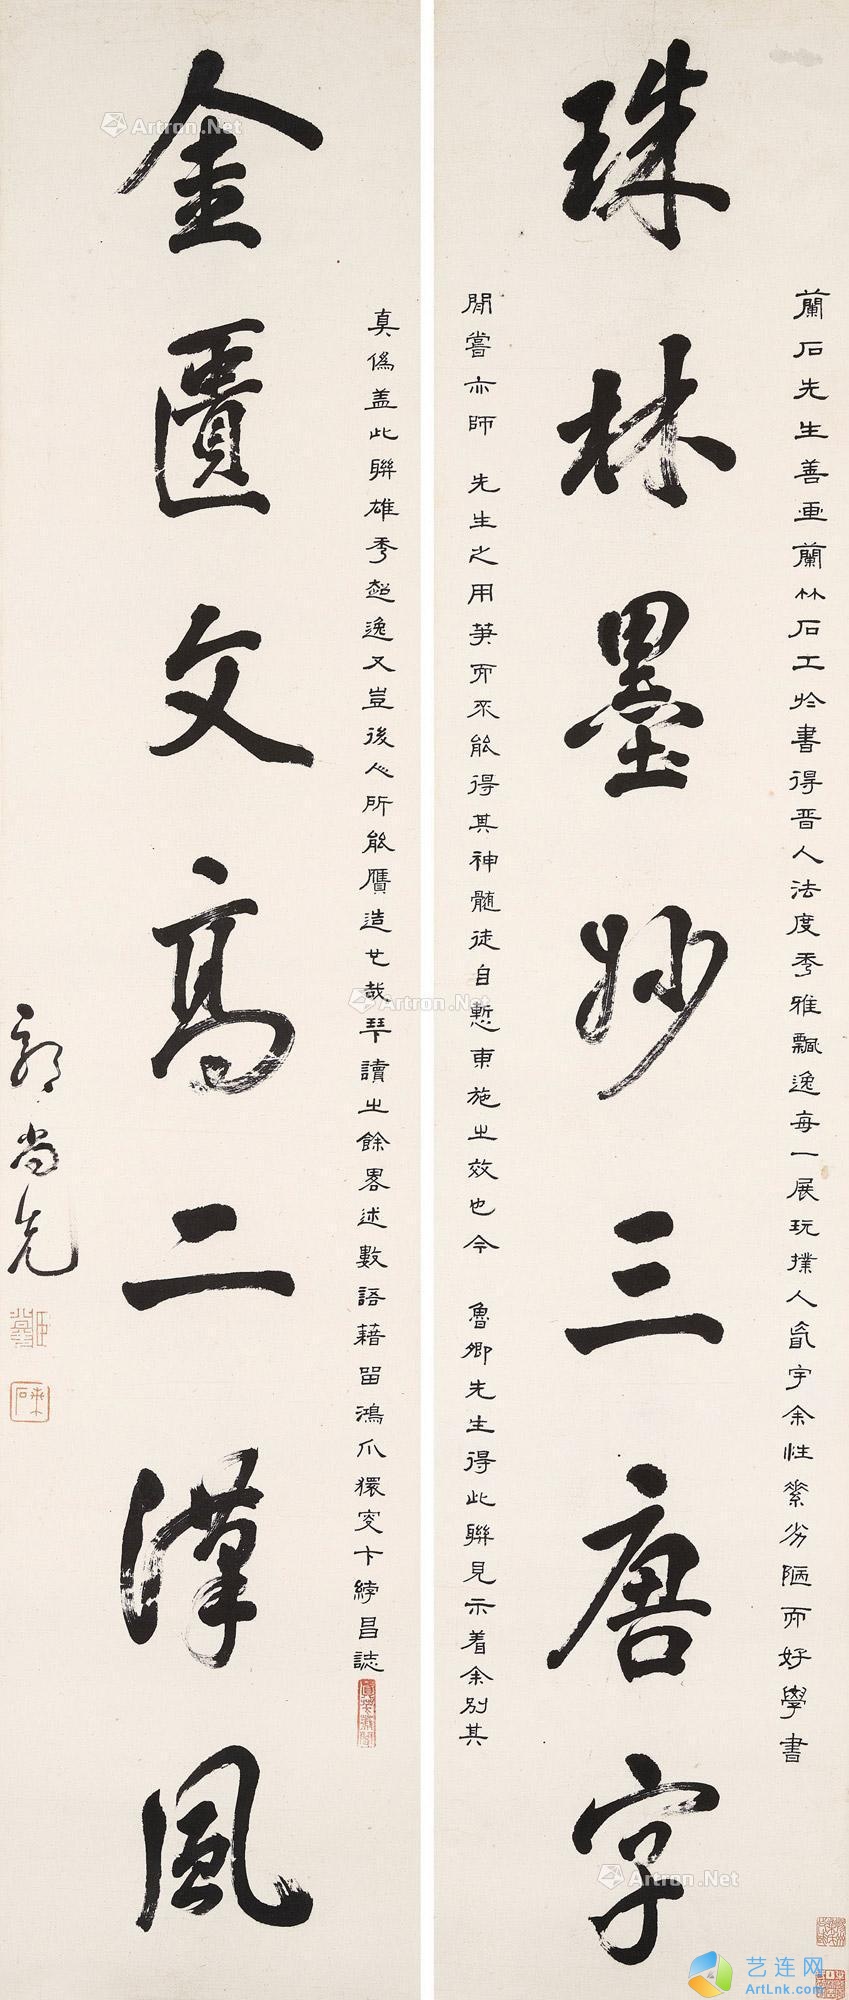 珠林墨妙三唐字
金匱文高二漢風
蘭石先生善畫蘭竹石工於書得晉人法度秀雅飄逸每一展玩撲人眉宇余性素劣陋而好學書
閒嘗亦師 先生之用筆而不能得其神髓徒自慙東施之效也今 魯卿先生得此聯見示着余別其
真偽蓋此聯雄秀超逸又豈後人所能贋造也哉琴讀之餘畧述數語藉留鴻爪 卞綍昌誌
郭尚先
Artron.Net
Artron.Net
Artron.Net
Artron.Net
Artron.Net
Artron.Net
艺连网
ArtLnk.Com